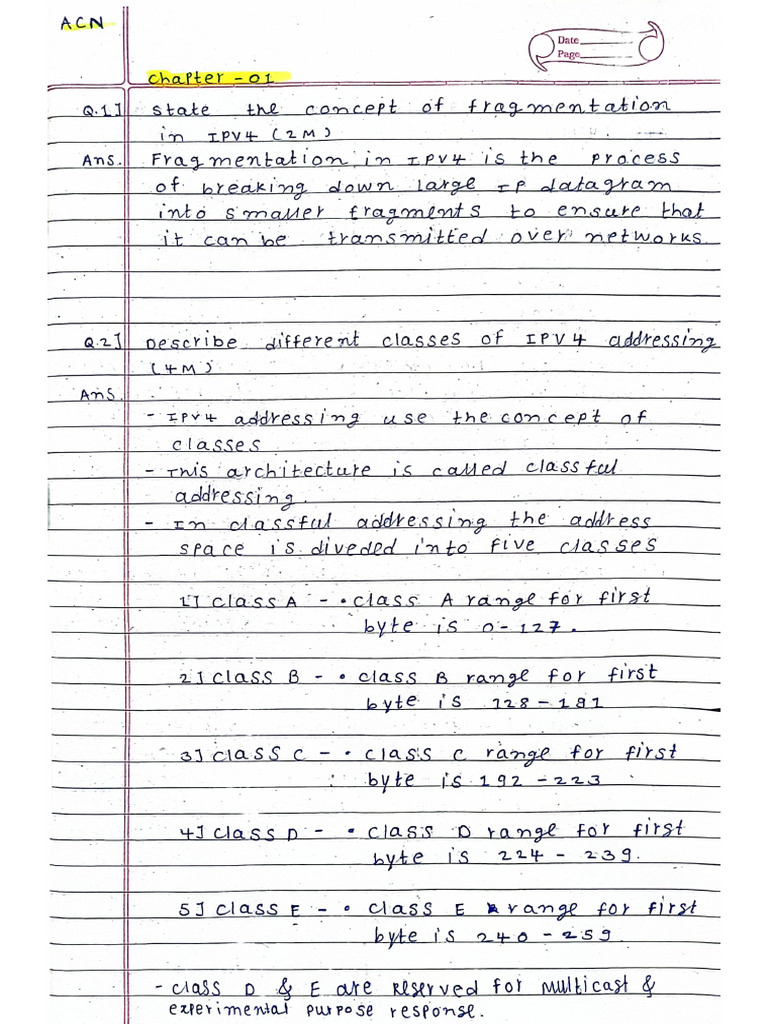 ACN
Date
Page
Chapter - 01
Q.1] State the concept of fragmentation
in IPV4 (2M)
Ans. Fragmentation in IPV4 is the process
of breaking down large IP datagram
into smaller fragments to ensure that
it can be transmitted over networks
Q.2] Describe different classes of IPV4 addressing
(4M)
Ans.
- IPV4 addressing use the concept of
classes
- This architecture is called classful
addressing.
- In classful addressing the address
space is diveded into five classes
1] class A - • class A range for first
byte is 0-127.
2] class B - • class B range for first
byte is 128-191
3] class C - • class C range for first
byte is 192-223
4] class D - • class D range for first
byte is 224 - 239.
5] class E - • class E range for first
byte is 240 - 259
- class D & E are reserved for multicast &
experimental purpose response.